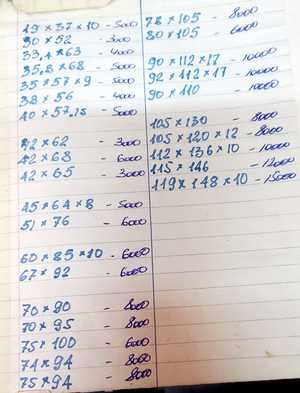 29 × 37 × 10 - 5000
30 × 52 - 3000
33,4 × 63 - 4000
35,8 × 68 - 5000
35 × 57 × 9 - 5000
38 × 56 - 4000
40 × 57,15 - 5000
42 × 62 - 3000
42 × 68 - 6000
42 × 65 - 3000
45 × 64 × 8 - 5000
51 × 76 - 6000
60 × 85 × 10 - 6000
67 × 92 - 6000
70 × 90 - 8000
70 × 95 - 8000
75 × 100 - 6000
74 × 94 - 8000
75 × 94 - 8000
78 × 105 - 8000
80 × 105 - 6000
90 × 112 × 17 - 10000
92 × 112 × 17 - 10000
90 × 110 - 10000
105 × 130 - 8000
105 × 120 × 12 - 8000
112 × 136 × 10 - 10000
115 × 146 - 12000
119 × 148 × 10 - 15000